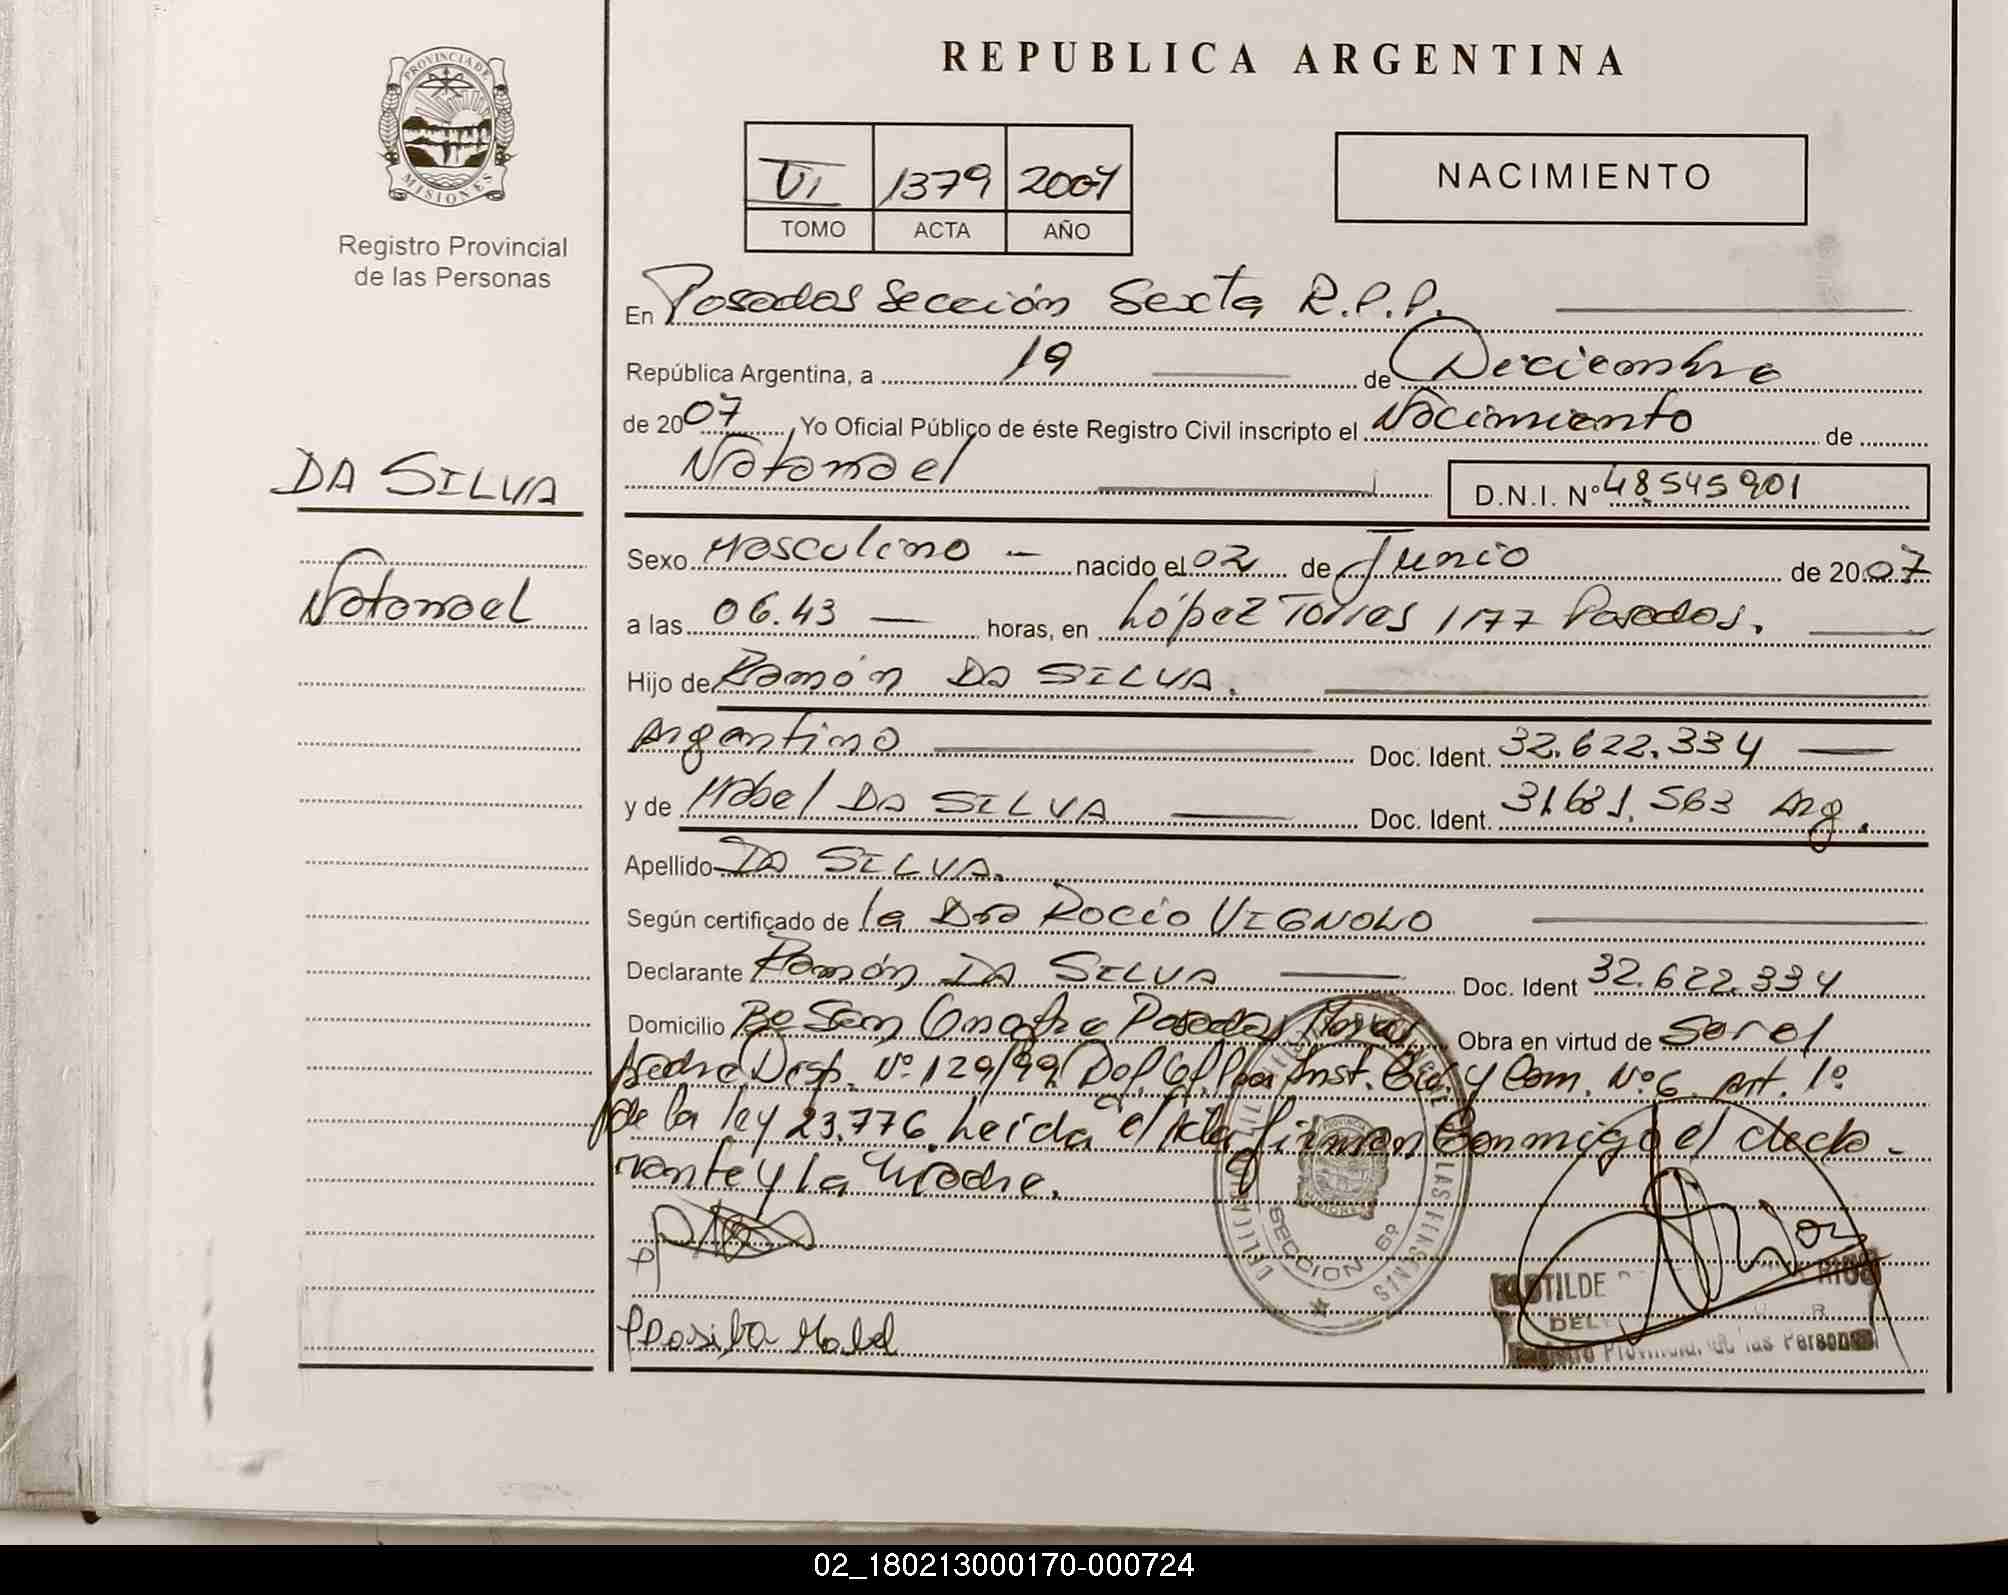 REPUBLICA ARGENTINA
PROVINCIA DE
MISIONES
Registro Provincial
de las Personas
VI 1379 2007
TOMO ACTA AÑO
NACIMIENTO
En Posadas Sección Sexta R.P.P.
República Argentina, a 19 de Diciembre
de 2007, Yo Oficial Público de éste Registro Civil inscripto el Nacimiento de
Natanael
D.N.I. Nº 48.545.901
DA SILVA
Natanael
Sexo Masculino — nacido el 02 de Junio de 2007
a las 06.43 — horas, en López Torres 1177 Posadas.
Hijo de Ramón DA SILVA.
Argentino Doc. Ident. 32.622.334
y de Mabel DA SILVA Doc. Ident. 31.681.563 Arg.
Apellido DA SILVA.
Según certificado de la Dra Rocío VIGNOLO
Declarante Ramón DA SILVA Doc. Ident 32.622.334
Domicilio Bº San Onofre Posadas Mnes Obra en virtud de ser el
padre Disp. Nº 129/99 Inst. y Com. Nº6 Art. 1º
de la ley 23.776. Leída el Acta firman Conmigo el decla-
rante y la Madre.
SECCION 6º
CLOTILDE
RIOS
Registro Provincial de las Personas
Mabel
02_180213000170-000724